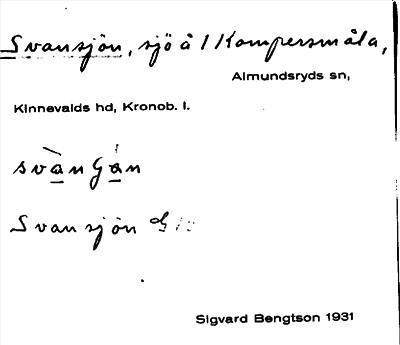 Svansjön, sjö å 1 Kampersmåla,
Almundsryds sn,
Kinnevalds hd, Kronob. l.
svànʃán
Svansjön
Sigvard Bengtson 1931